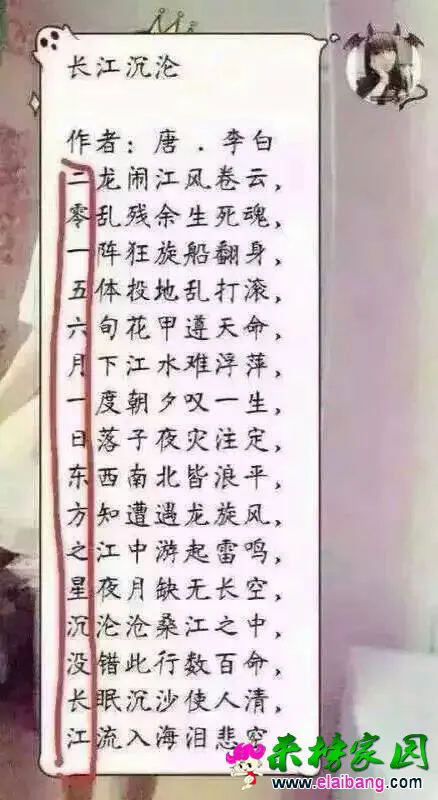 长江沉沦
作者：唐．李白
二龙闹江风卷云，
零乱残余生死魂，
一阵狂旋船翻身，
五体投地乱打滚，
六旬花甲遵天命，
月下江水难浮萍，
一度朝夕叹一生，
日落子夜灾注定，
东西南北皆浪平，
方知遭遇龙旋风，
之江中游起雷鸣，
星夜月缺无长空，
沉沦沧桑江之中，
没错此行数百命，
长眠沉沙使人清，
江流入海泪悲空
来榜家园
www.elaibang.com